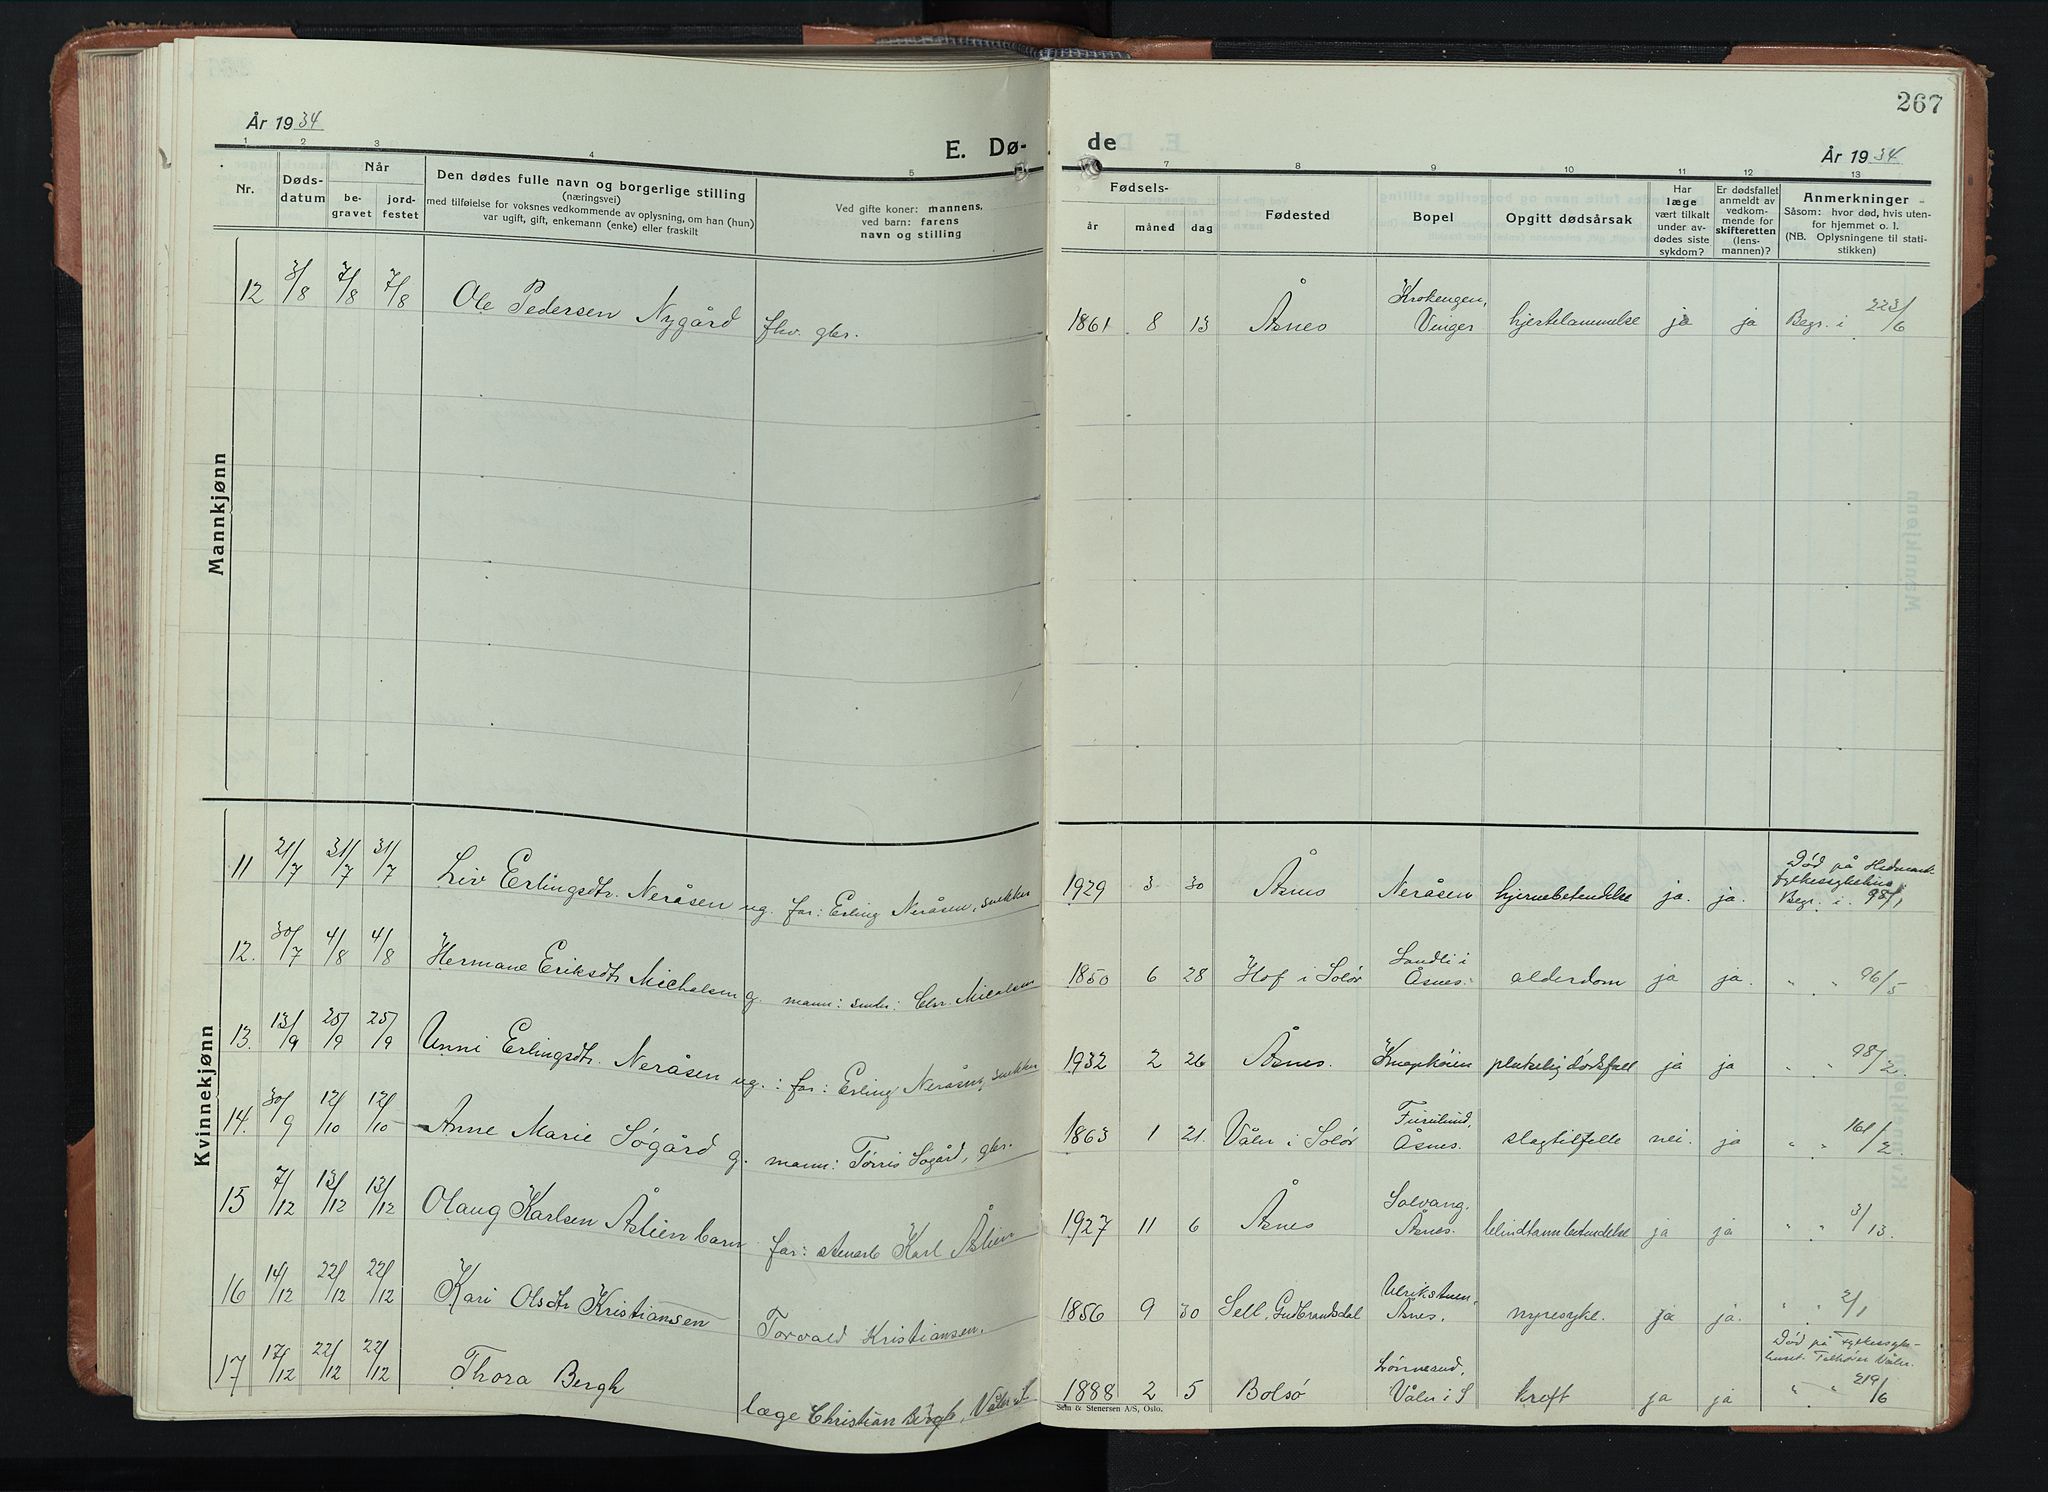 267
År 1934
E. Dø-
de
År 1934
1 2 3 4 5 7 8 9 10 11 12 13
Nr.
Døds-
datum
Når
be-
gravet
jord-
festet
Den dødes fulle navn og borgerlige stilling
(næringsvei)
med tilføielse for voksnes vedkommende av oplysning, om han (hun)
var ugift, gift, enkemann (enke) eller fraskilt
Ved gifte koner: mannens,
ved barn: farens
navn og stilling
Fødsels-
år måned dag
Fødested
Bopel
Opgitt dødsårsak
Har
læge
vært tilkalt
under av-
dødes siste
sykdom?
Er dødsfallet
anmeldt av
vedkom-
mende for
skifteretten
(lens-
mannen)?
Anmerkninger
Såsom: hvor død, hvis uten-
for hjemmet o. l.
(NB. Oplysningene til stati-
stikken)
Mannkjønn
12 3/8 7/8 7/8 Ole Pedersen Nygård fhv. gbr. 1861 8 13 Åsnes Krokengen, Vinger hjertelammelse ja ja Begr. i 223/6
Kvinnekjønn
11 21/7 31/7 31/7 Liv Erlingsdtr. Neråsen ug. far: Erling Neråsen, snekker 1929 3 30 Åsnes Neråsen hjernebetendelse ja. ja. Død på Hedmark fylkessykehus. Begr. i. 98/1
12. 30/7 4/8 4/8 Hermane Eriksdtr Michalsen g. mann: Chr. Micalsen 1850 6 28 Hof i Solør Sandli i Åsnes. alderdom ja ja. " " 96/5
13. 13/9 25/9 25/9 Unni Erlingsdtr. Neråsen ug.: far: Erling Neråsen, snekker 1932 2 26 Åsnes. Knapkøien plutselig dødsfall ja ja " " 98/2
14. 30/9 12/10 12/10 Anne Marie Søgård g. mann: Tørris Søgård, gbr. 1863 1 21. Våler i Solør Furulund, Åsnes. slagtilfelle nei. ja " " 161/2
15 7/12 13/12 13/12 Olaug Karlsen Åslien barn far: stenarb Karl Åslien 1927 11 6 Åsnes Solvang, Åsnes. blindtarmbetendelse ja ja " " 3/13.
16 14/12 22/12 22/12 Kari Olsdtr Kristiansen Torvald Kristiansen. 1856 9 30 Sell, Gudbrandsdal Åsnes. nyresyke. ja ja. " " 2/1
17 17/12 22/12 22/12 Thora Bergh læge Christian Bergh, Våler i S. 1888 2 5 Bolsø Våler i S kreft ja ja Død på Fylkessyke-huset. Våler. " " 219/6
Sem & Stenersen A/S, Oslo.